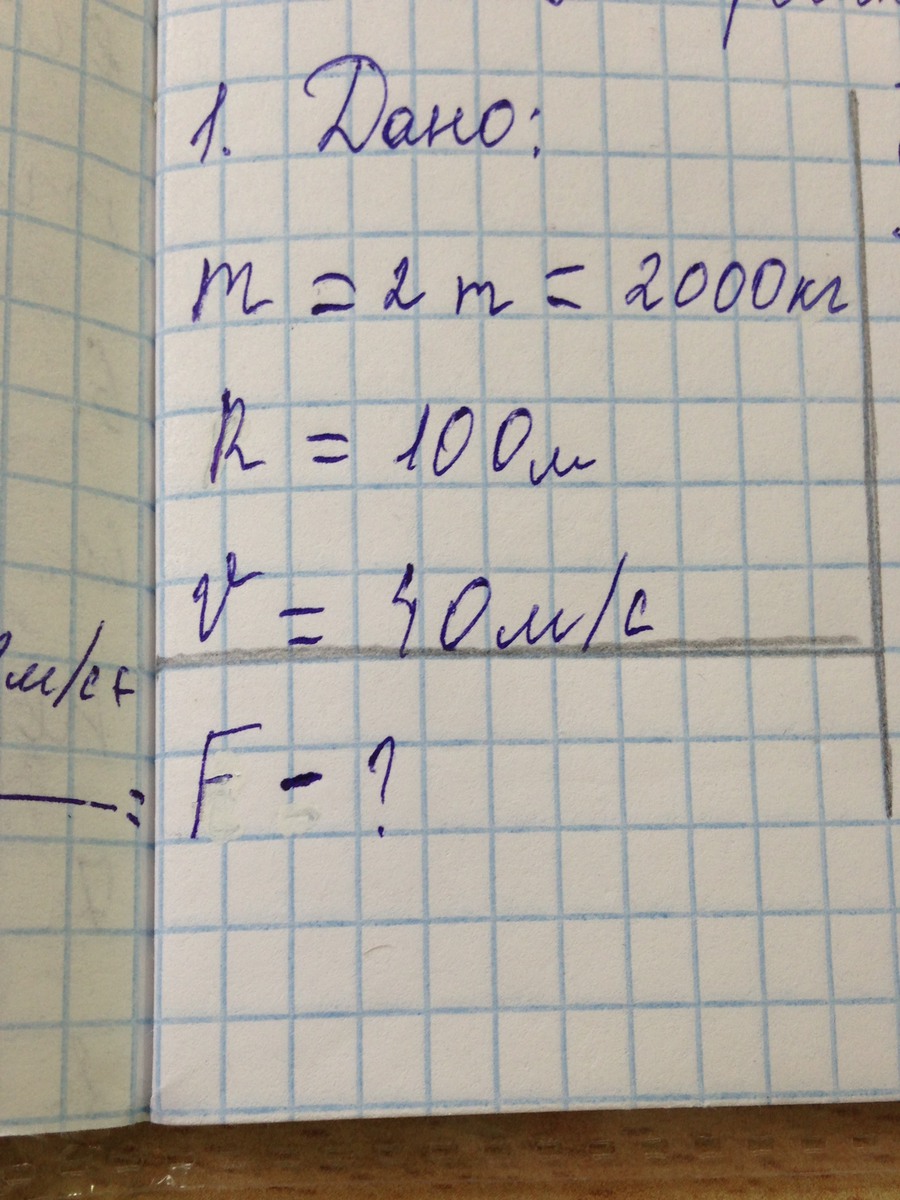 1. Дано:
m = 2 т = 2000кг
R = 100м
v = 40м/с
м/с+
=
F - ?